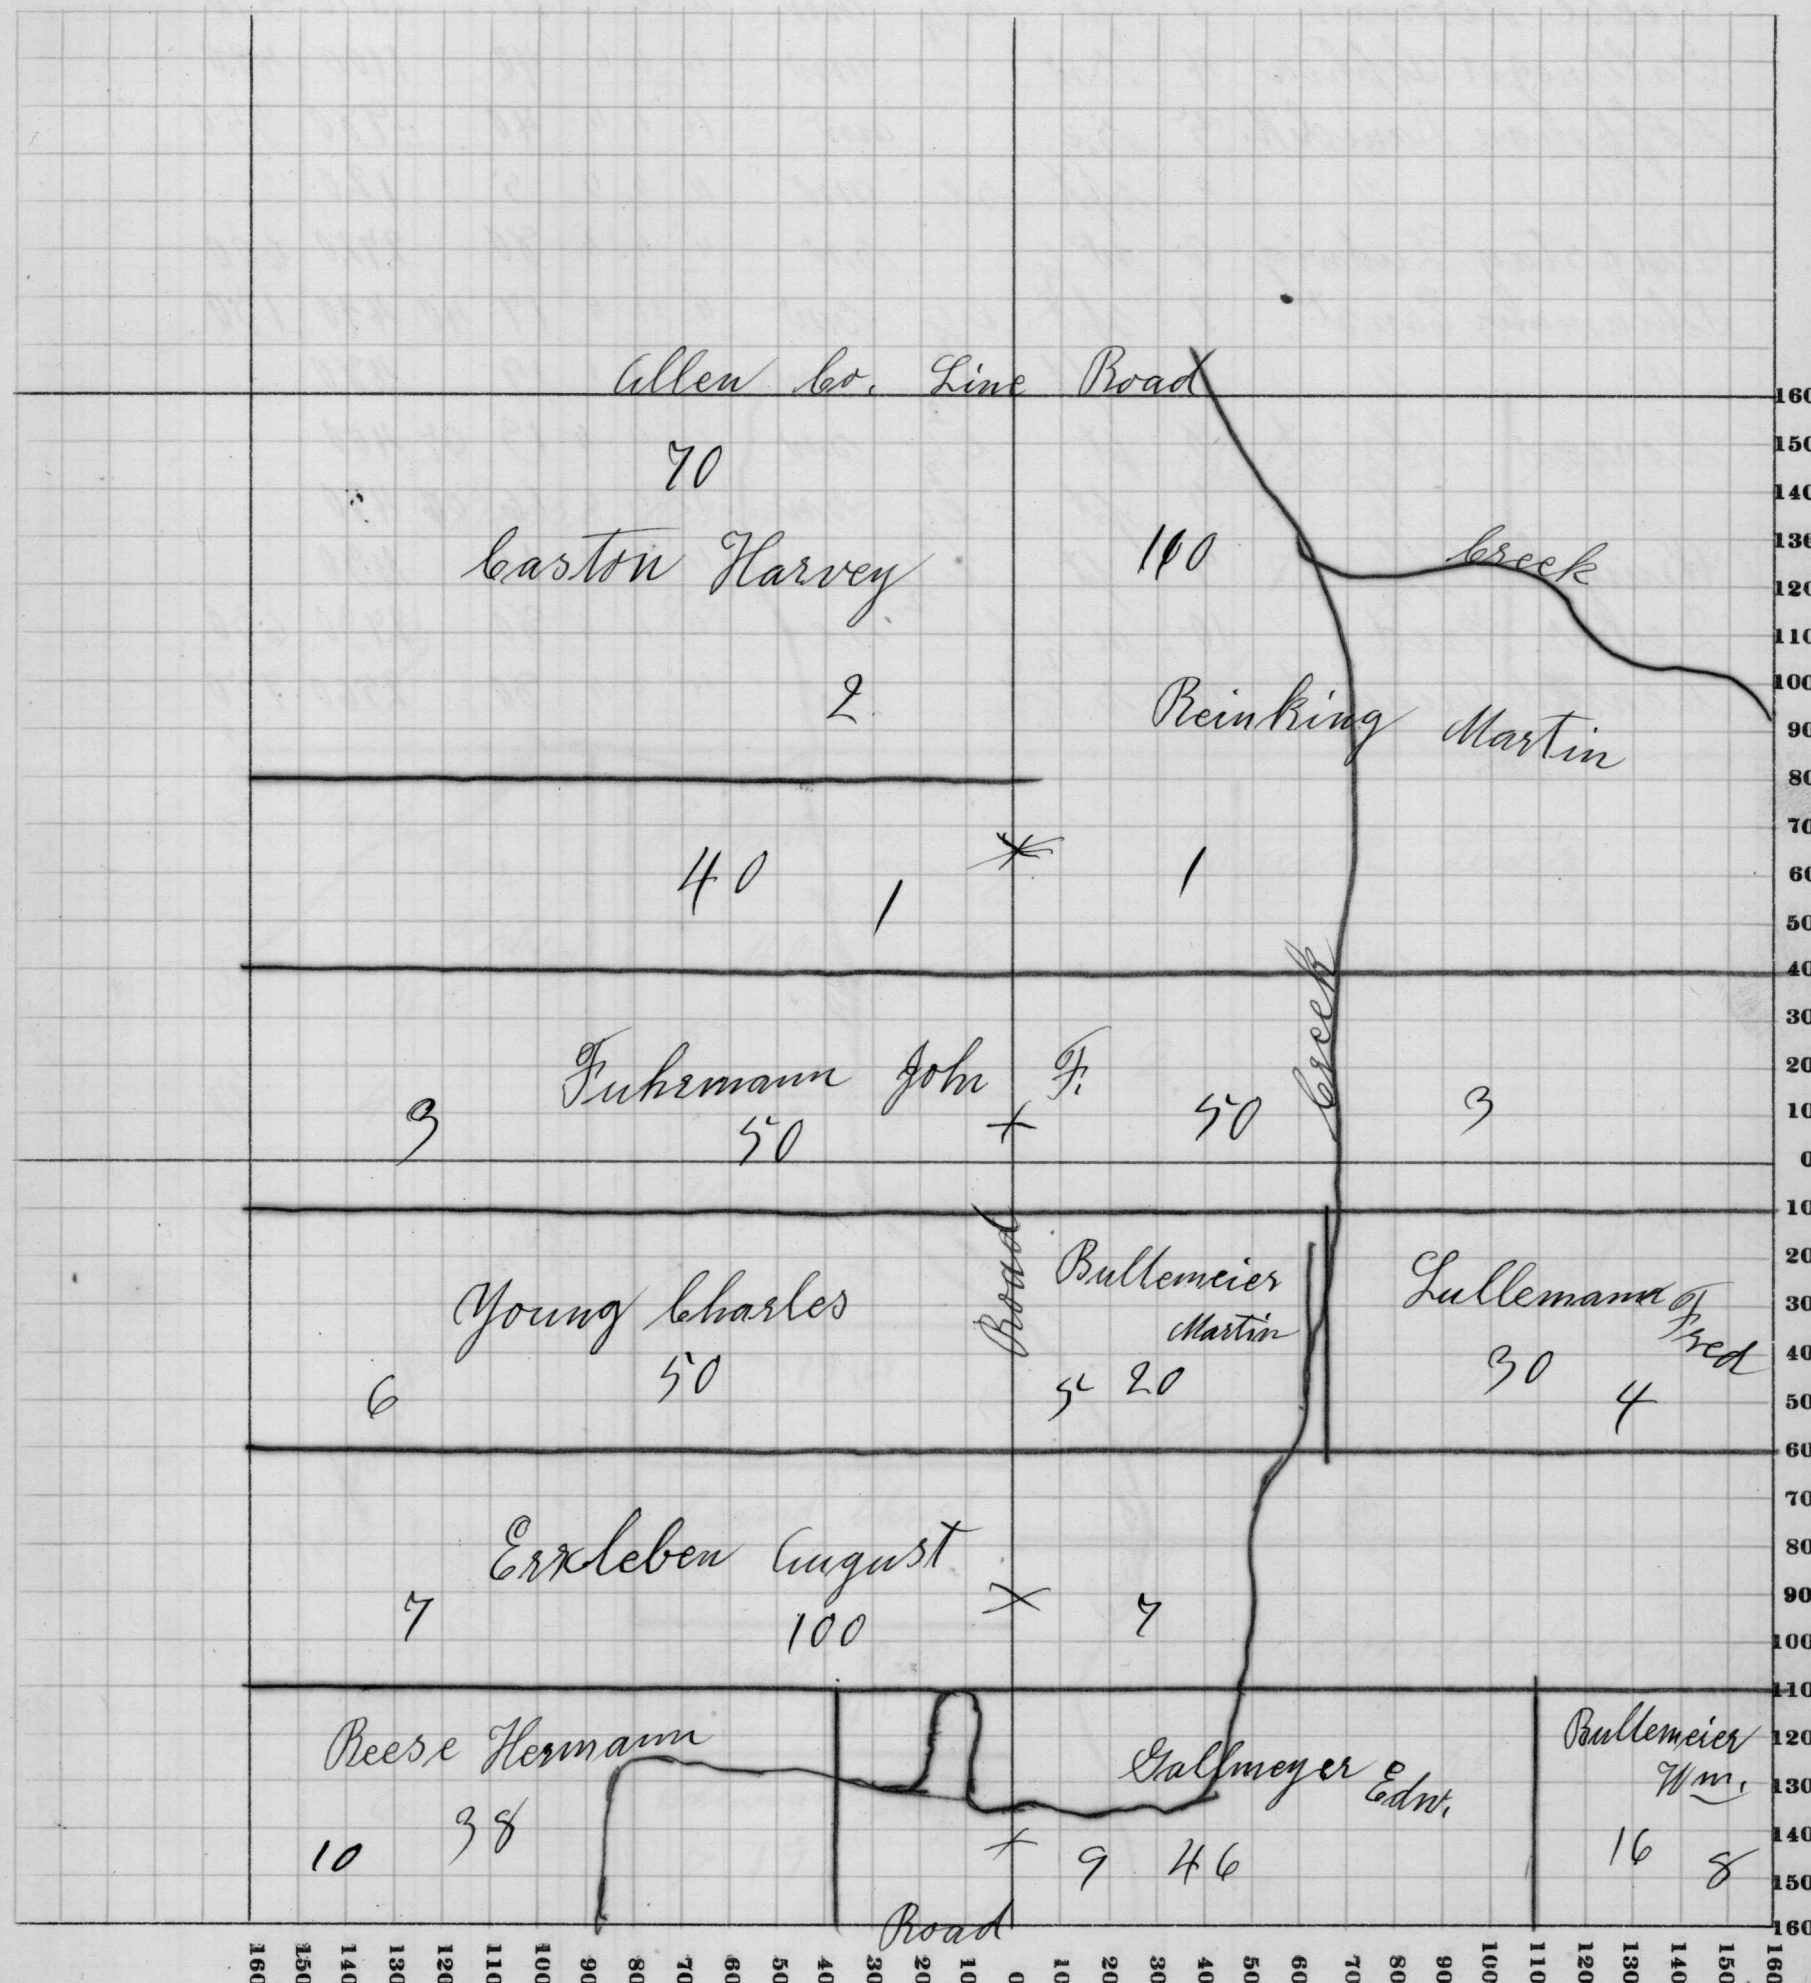 Allen Co. Line Road
70
Caston Harvey
110
Creek
2
Reinking Martin
40
1
1
Creek
Fuhrmann John F.
3
50
50
3
Road
Young Charles
50
6
Bultemeier
Martin
5 20
Lullemann Fred
30
4
Erxleben August
7
100
7
Reese Hermann
38
10
Gallmeyer Edw.
9 46
Bultemeier
Wm.
16
8
Road
160
150
140
130
120
110
100
90
80
70
60
50
40
30
20
10
0
10
20
30
40
50
60
70
80
90
100
110
120
130
140
150
160
160 150 140 130 120 110 100 90 80 70 60 50 40 30 20 10 0 10 20 30 40 50 60 70 80 90 100 110 120 130 140 150 160